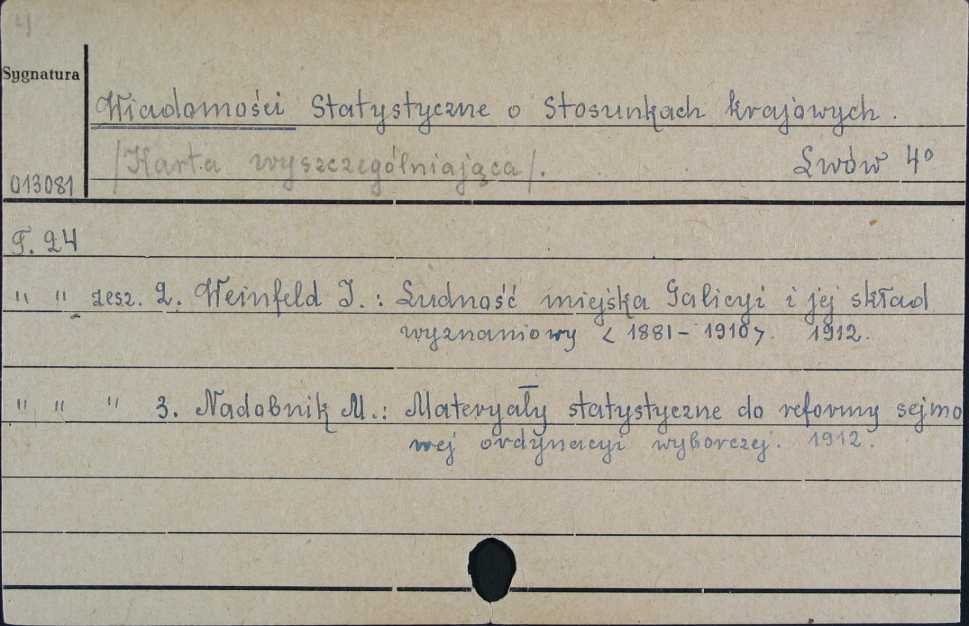 4
Sygnatura
Wiadomości Statystyczne o Stosunkach krajowych.
/Karta wyszczególniająca/. Lwów 4°
013081
T. 24
" " zesz. 2. Weinfeld I.: Ludność miejska Galicyi i jej skład
wyznaniowy < 1881 - 1910 >. 1912.
" " " 3. Nadobnik M.: Materyały statystyczne do reformy sejmo
wej ordynacyi wyborczej. 1912.